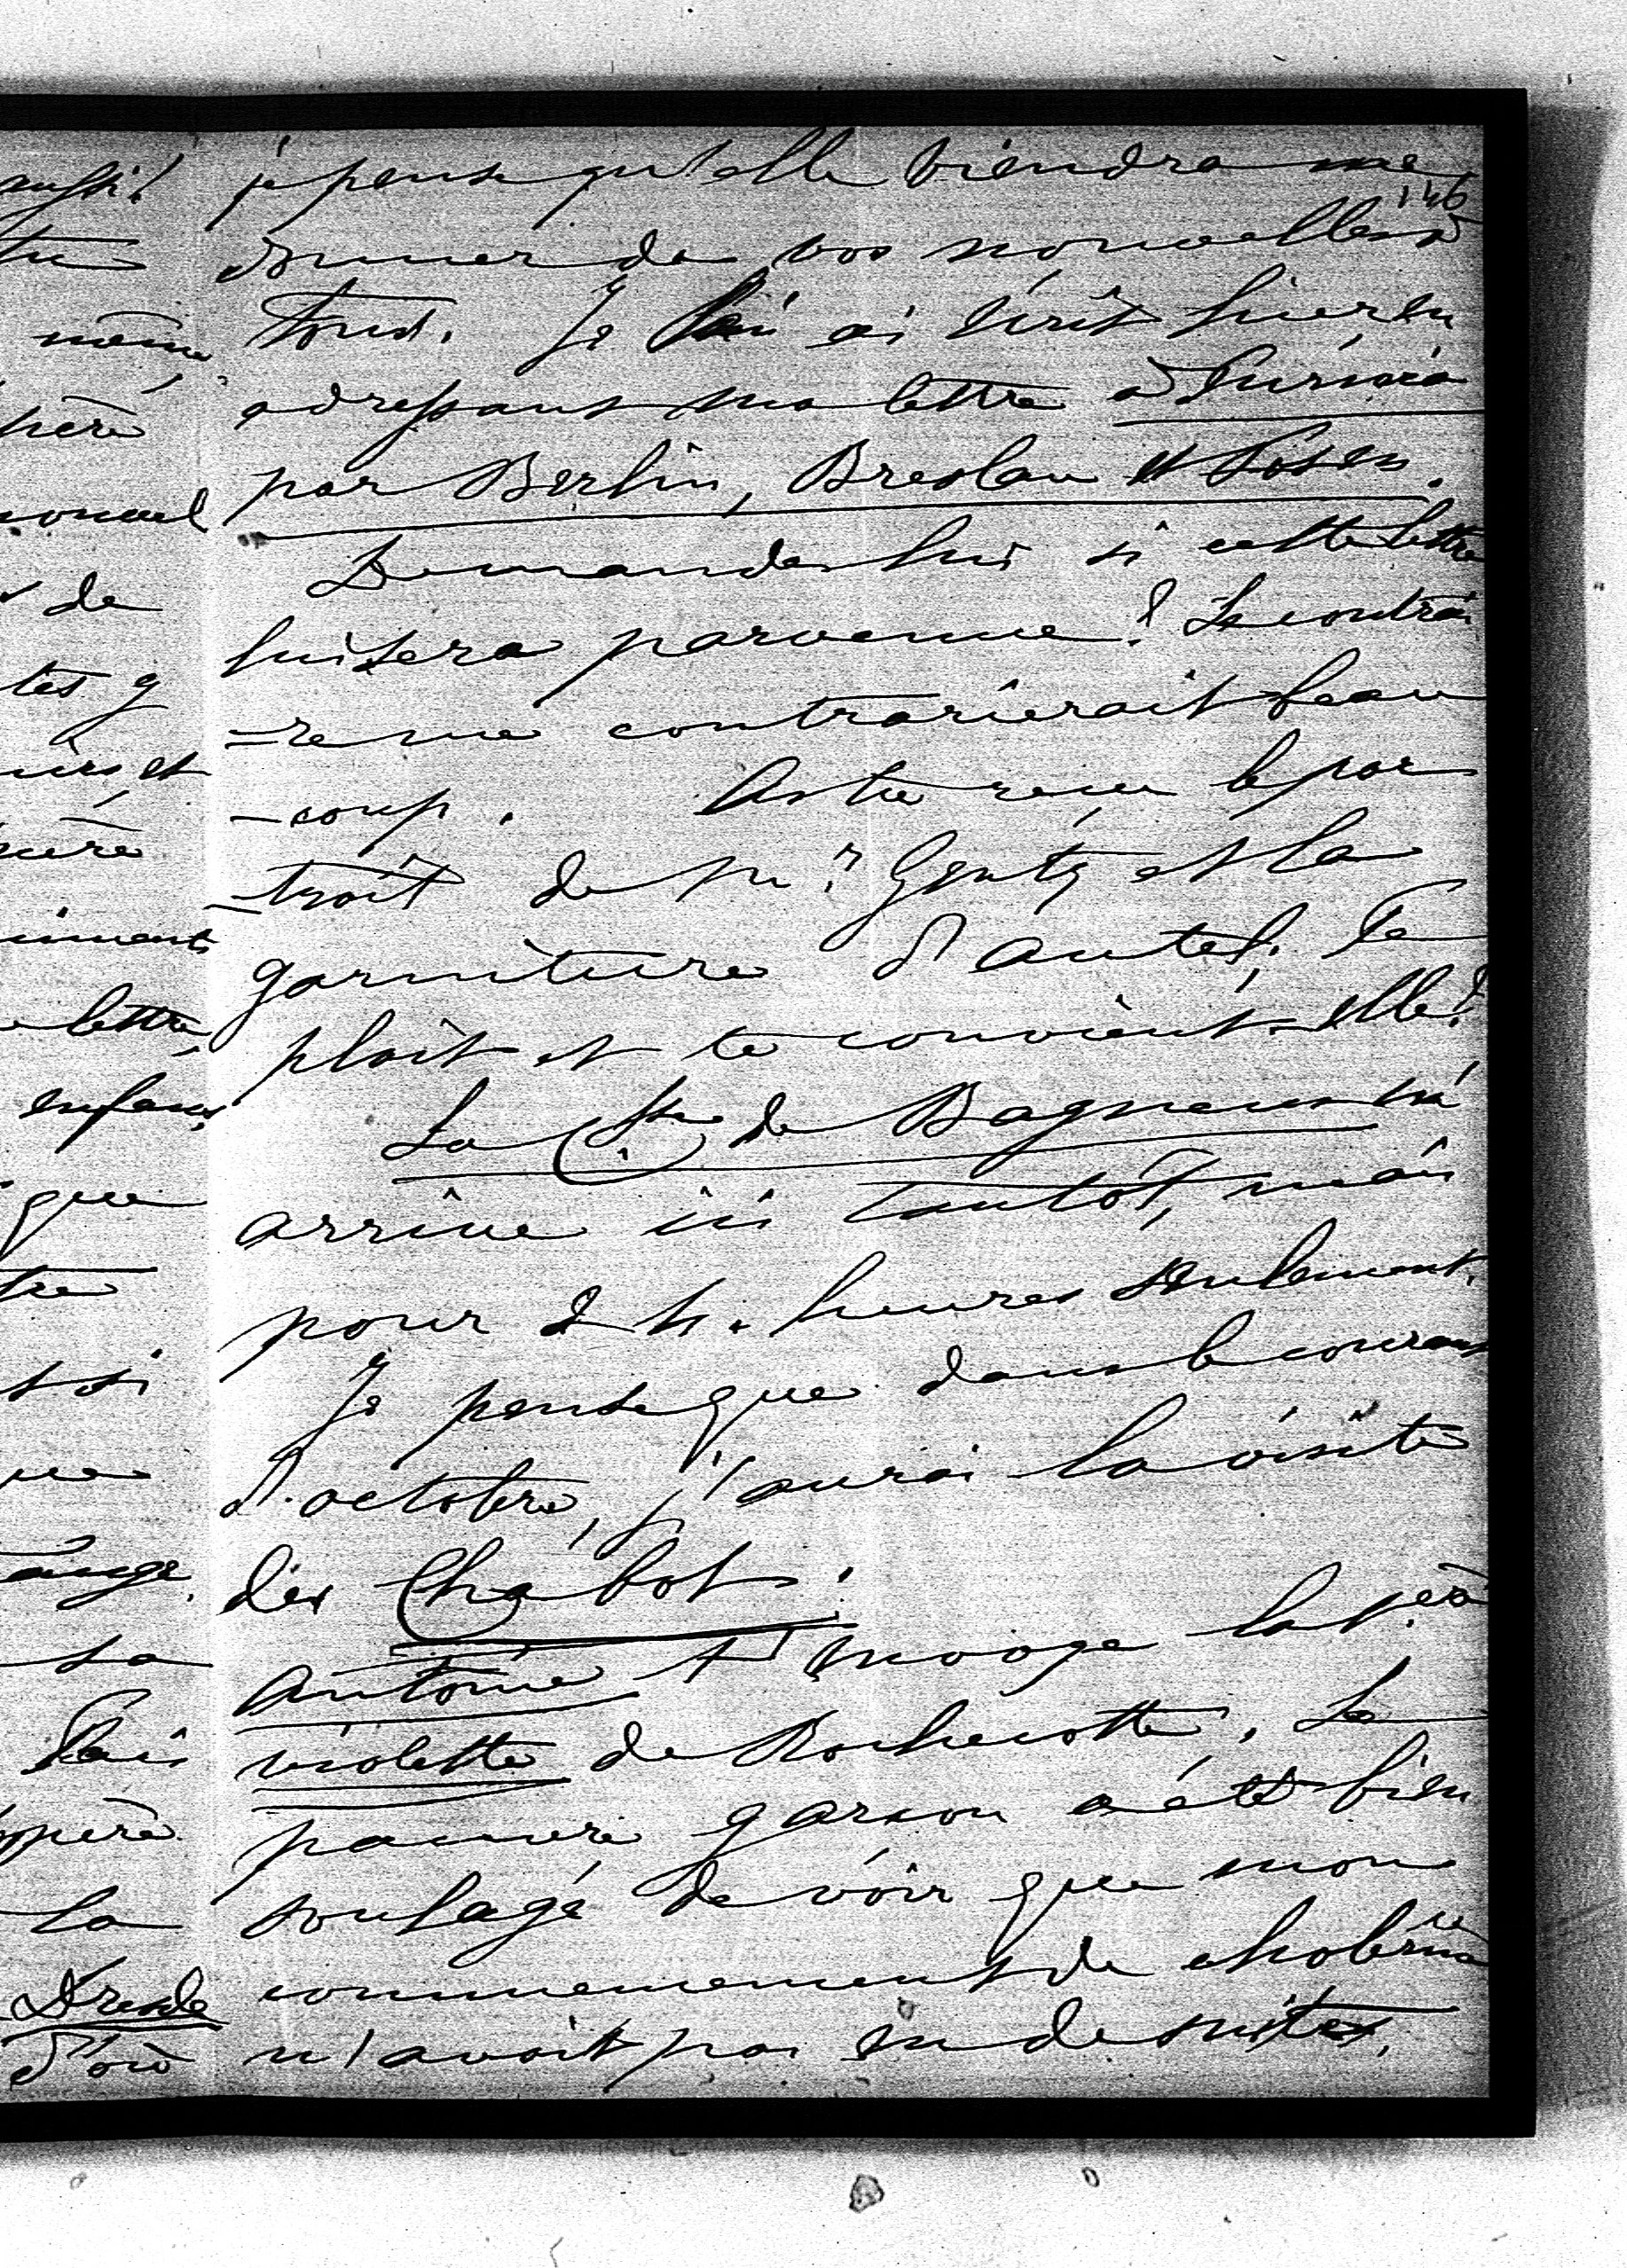 aussi!
tu
même
père
nouvel
de
tes q
et
lettre,
enfans,
que
tre
ange.
sa
Mais
la
Dresde
d'où
146
je pense qu'elle viendra me
donner de vos nouvelles à
tous. Je lui ai écrit hier en
adressant ma lettre à
par Berlin, Breslau et Posen.
Demandes lui si cette lettre
lui sera parvenue? Le contrai
=re me contrarierait beau
-coup. As tu reçu le por
-trait de Mr. Gentz et la
garniture d'autel. Te
plait et te convient-elle?
La Ctsse de Bagneux m'a
arrive ici tantôt, mais
pour 24. heures seulement.
Je pense que dans le courant
d'octobre, j'aurai la visite
des Chabot.
Antoine t'envoye la 1ère
violette de Rochecotte. Le
pauvre garson a été bien
soulagé de voir que mon
commencement de cholerine
n'avoit pas eu de suites.